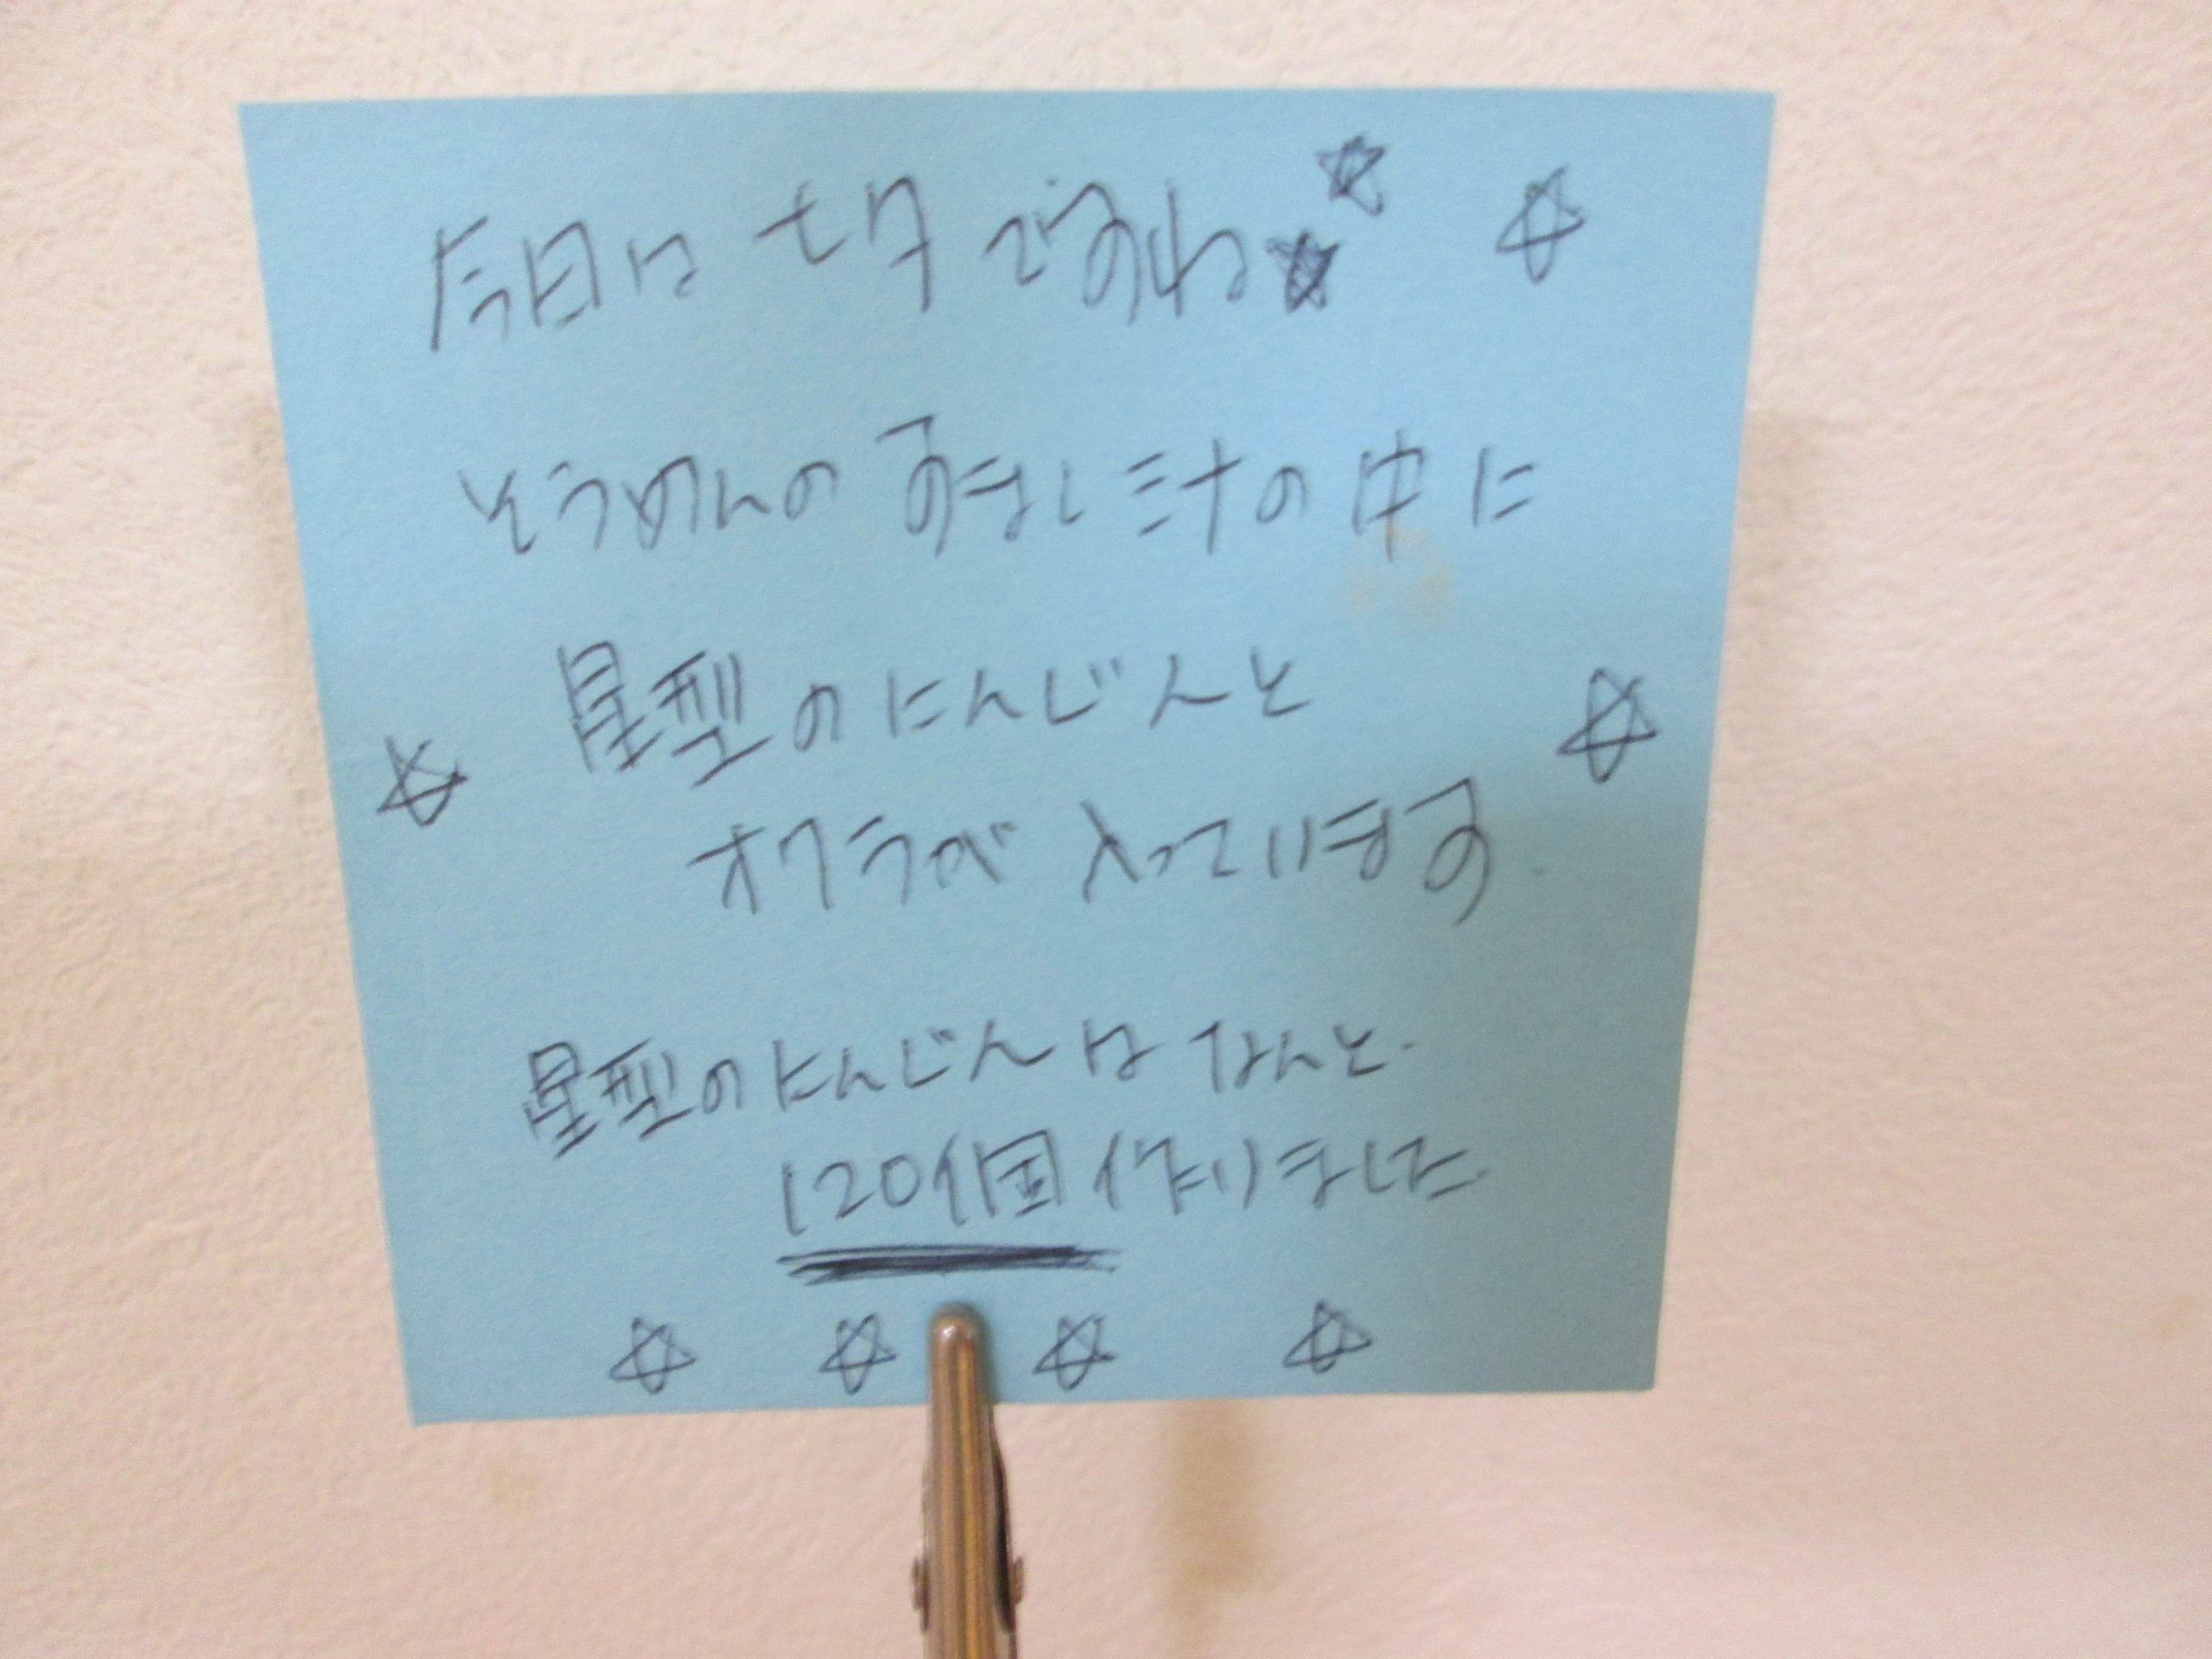 今日は七夕ですね
そうめんのすまし汁の中に
星型のにんじんと
オクラが入っています.
星型のにんじんはなんと.
120個作りました.